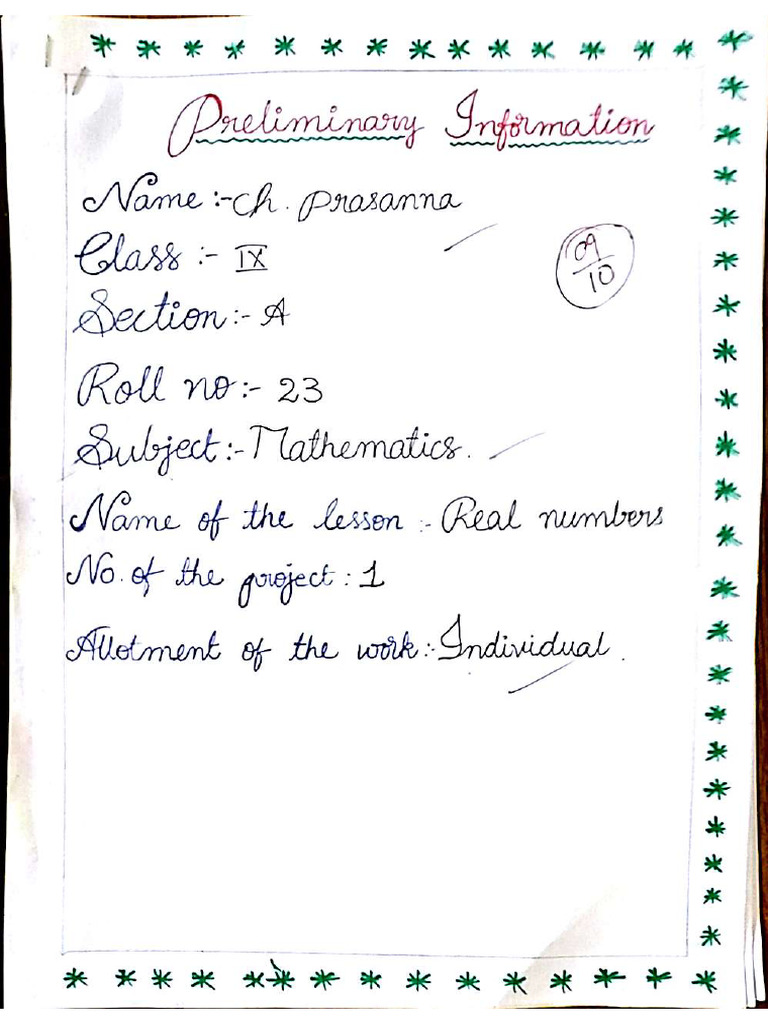 Preliminary Information
Name :- Ch. Prasanna
Class :- IX
09
10
Section :- A
Roll no :- 23
Subject :- Mathematics.
Name of the lesson :- Real numbers
No. of the project : 1
Allotment of the work :- Individual.